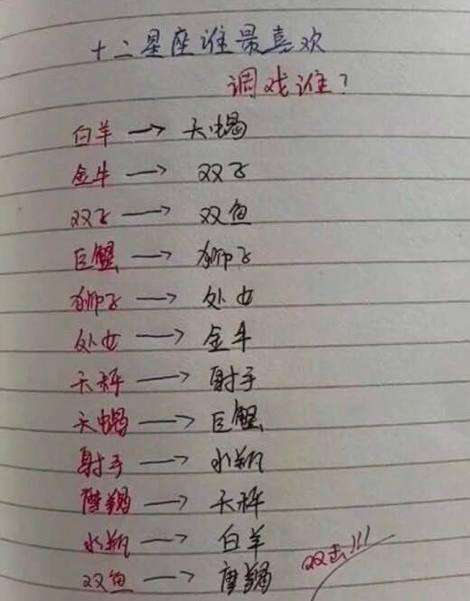 十二星座谁最喜欢
调戏谁？
白羊 → 天蝎
金牛 → 双子
双子 → 双鱼
巨蟹 → 狮子
狮子 → 处女
处女 → 金牛
天秤 → 射手
天蝎 → 巨蟹
射手 → 水瓶
摩羯 → 天秤
水瓶 → 白羊
双鱼 → 摩羯
双击!!!